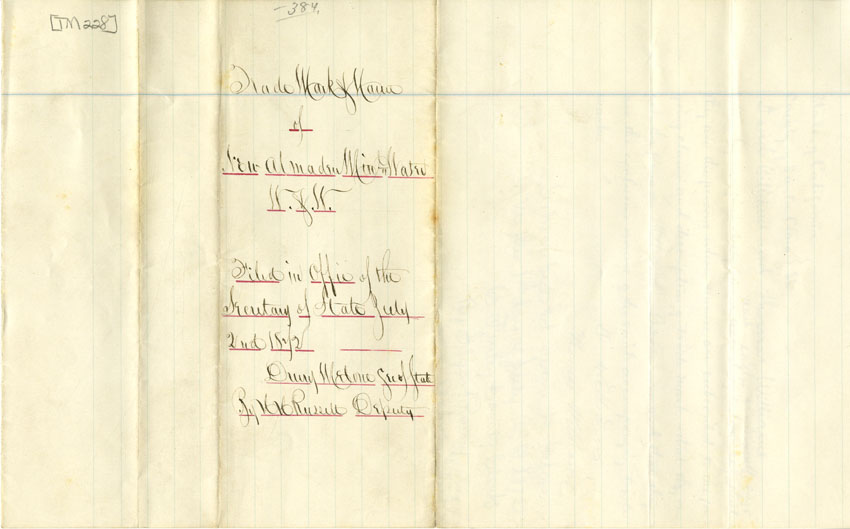 [TM 228]
384.
Trade Mark & Name
of
New Almaden Min Water
W. & W.
Filed in Office of the
Secretary of State July
2nd 1872
Drury Melone Sec of State
By Russell Deputy